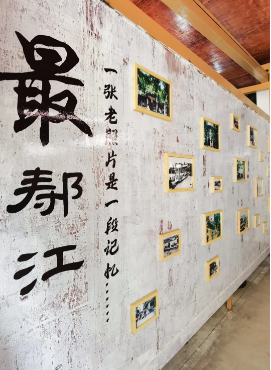 最帮江
一张老照片是一段记忆……